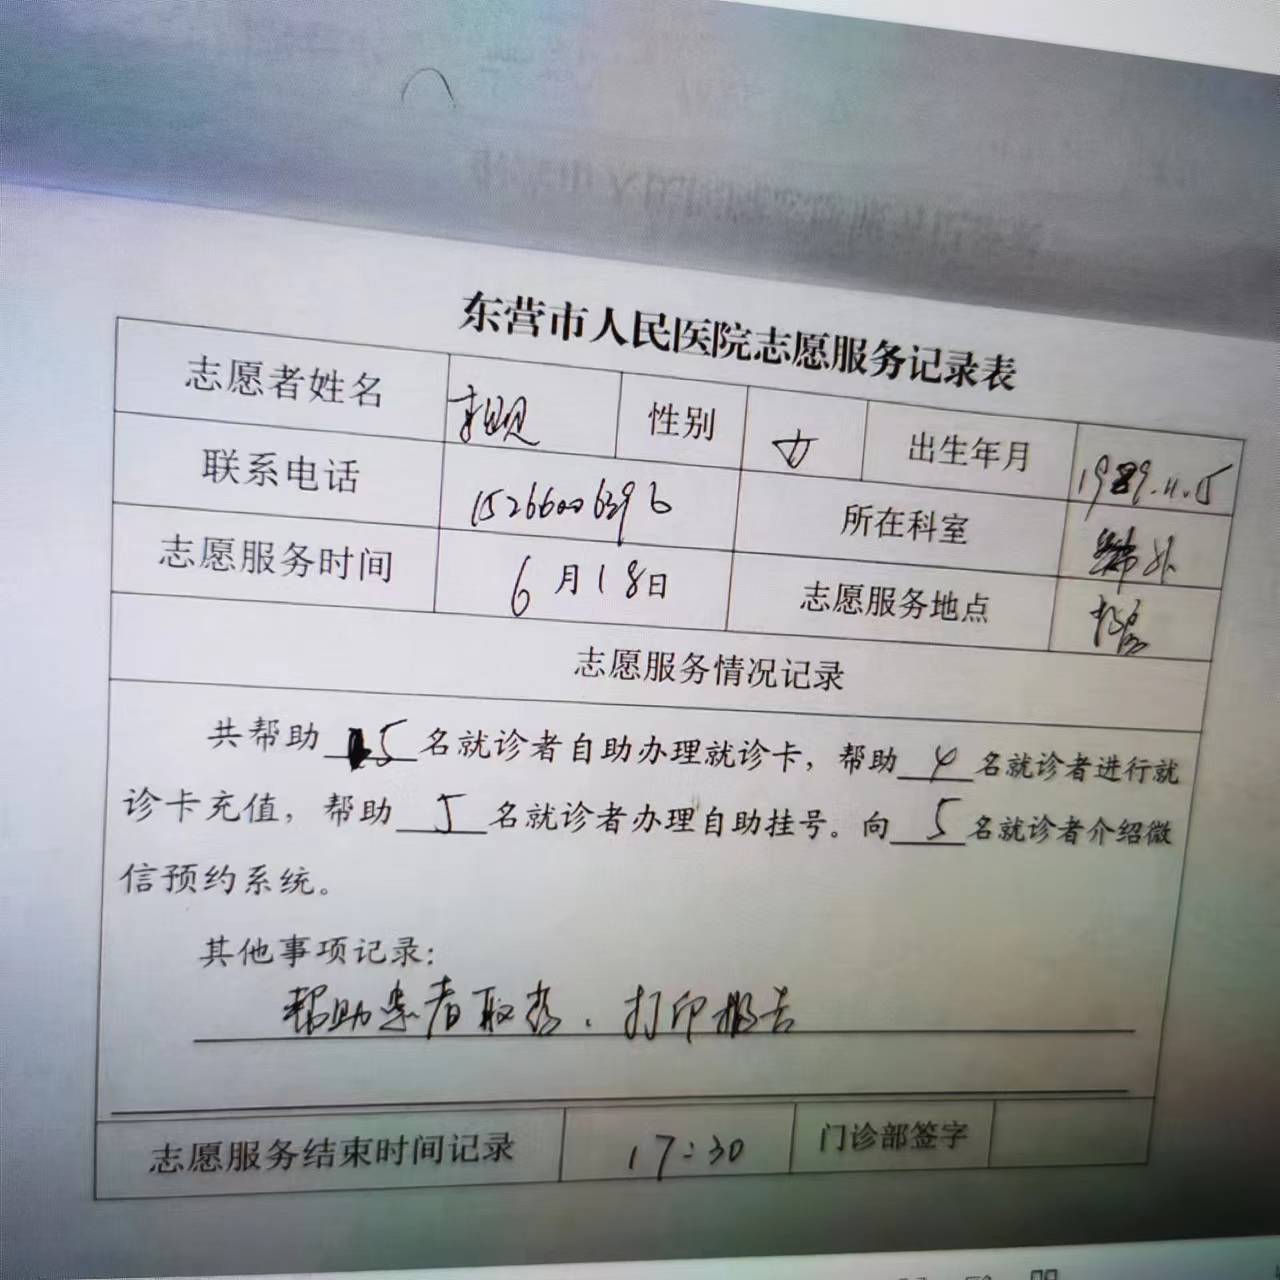 东营市人民医院志愿服务记录表
志愿者姓名 性别 女 出生年月 1989.11.15
联系电话 15266006396 所在科室 外
志愿服务时间 6月18日 志愿服务地点
志愿服务情况记录
共帮助 5 名就诊者自助办理就诊卡，帮助 4 名就诊者进行就
诊卡充值，帮助 5 名就诊者办理自助挂号。向 5 名就诊者介绍微
信预约系统。
其他事项记录：
帮助患者取 打印报告
志愿服务结束时间记录 17:30 门诊部签字